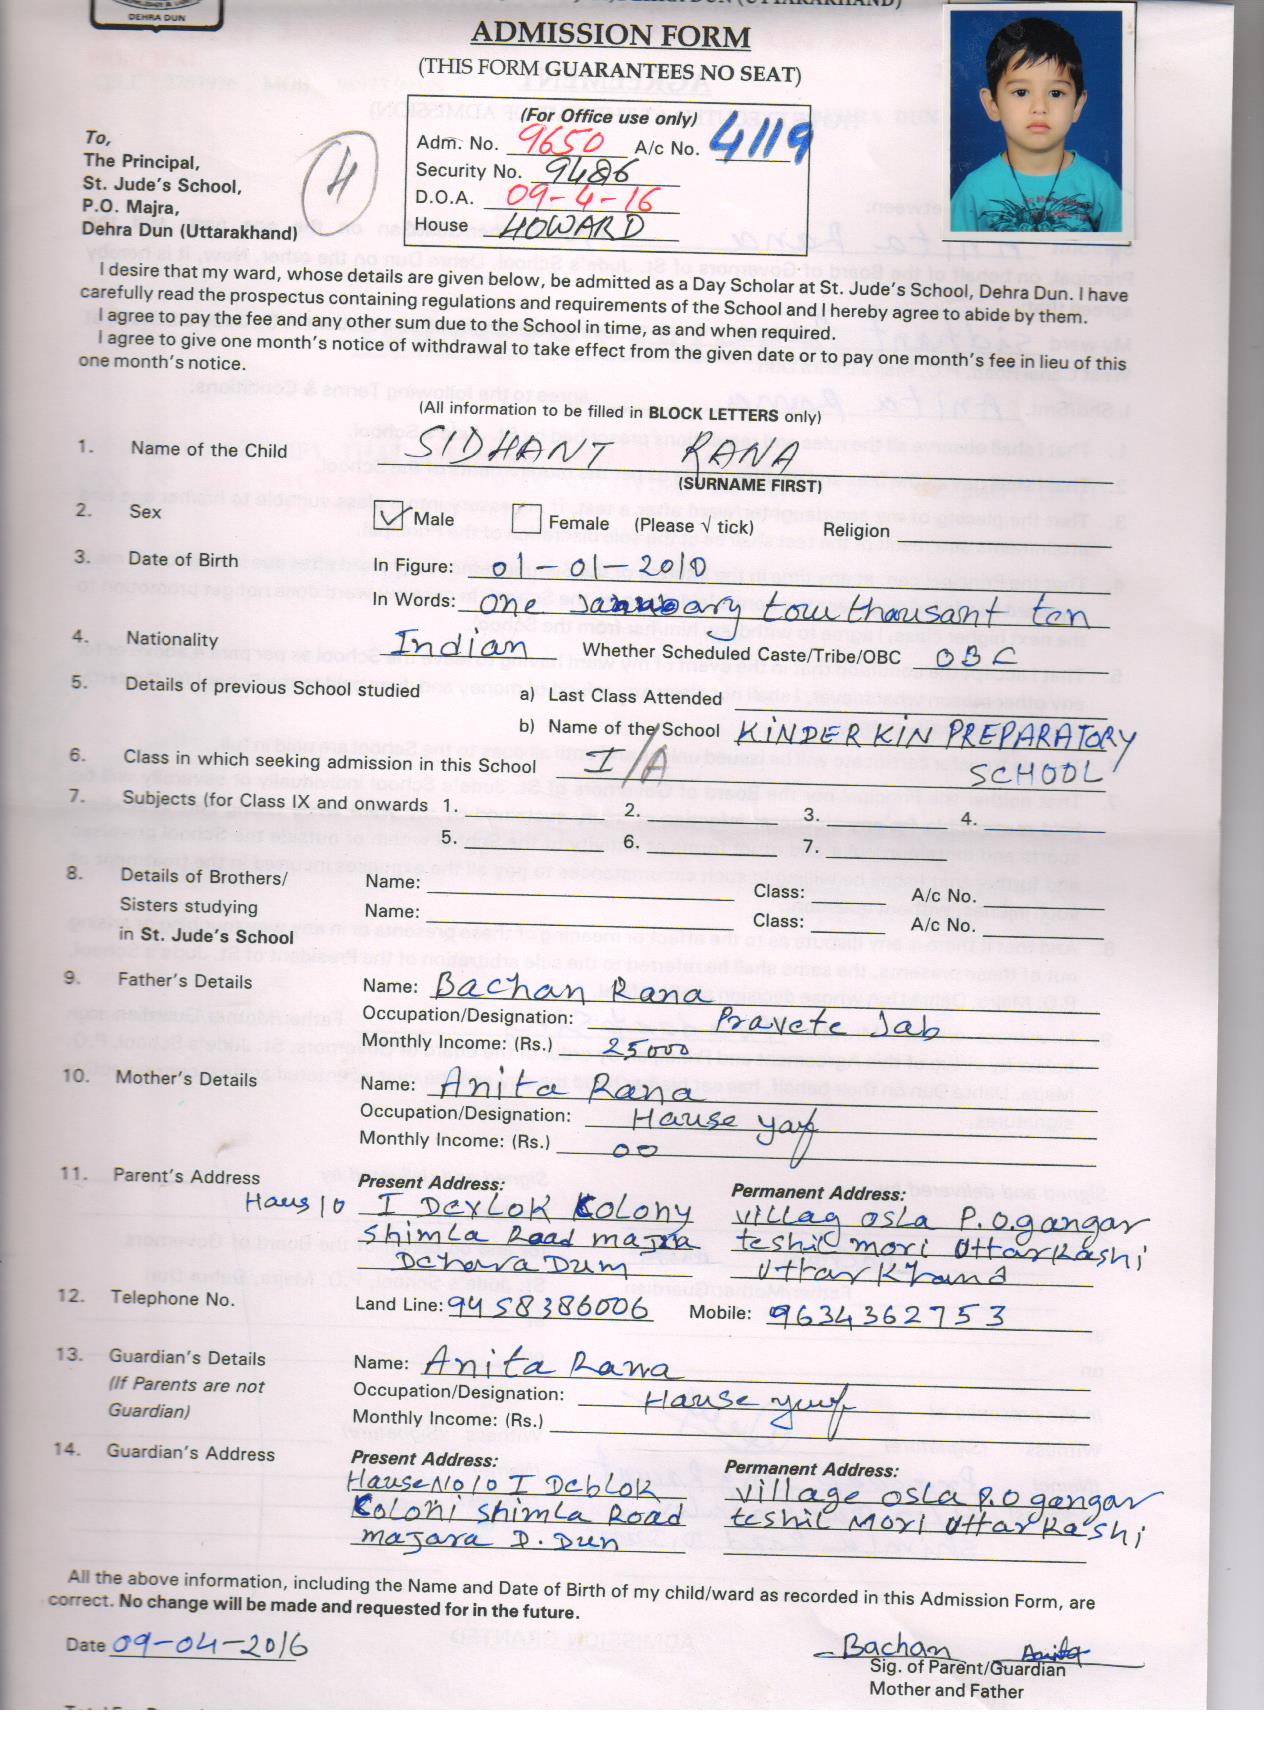 DEHRA DUN
DEHRA DUN (UTTARAKHAND)
ADMISSION FORM
(THIS FORM GUARANTEES NO SEAT)
(For Office use only)
Adm. No. 9650 A/c No. 4119
Security No. 9486
D.O.A. 09-4-16
House HOWARD
4
To,
The Principal,
St. Jude's School,
P.O. Majra,
Dehra Dun (Uttarakhand)
I desire that my ward, whose details are given below, be admitted as a Day Scholar at St. Jude's School, Dehra Dun. I have
carefully read the prospectus containing regulations and requirements of the School and I hereby agree to abide by them.
I agree to pay the fee and any other sum due to the School in time, as and when required.
I agree to give one month's notice of withdrawal to take effect from the given date or to pay one month's fee in lieu of this
one month's notice.
(All information to be filled in BLOCK LETTERS only)
1. Name of the Child SIDHANT RANA
(SURNAME FIRST)
2. Sex Male Female (Please √ tick) Religion
3. Date of Birth In Figure: 01-01-2010
In Words: one January touthausant ten
4. Nationality Indian Whether Scheduled Caste/Tribe/OBC OBC
5. Details of previous School studied a) Last Class Attended
b) Name of the School KINDER KIN PREPARATORY
SCHOOL
6. Class in which seeking admission in this School I/A
7. Subjects (for Class IX and onwards 1. 2. 3. 4.
5. 6. 7.
8. Details of Brothers/ Name: Class: A/c No.
Sisters studying Name: Class: A/c No.
in St. Jude's School
9. Father's Details Name: Bachan Rana
Occupation/Designation: Pravete Jab
Monthly Income: (Rs.) 25000
10. Mother's Details Name: Anita Rana
Occupation/Designation: Hause yaf
Monthly Income: (Rs.) 00
11. Parent's Address Present Address: Permanent Address:
Haus 10 I DevLOK Kolony villag osla P.O.gangar
Shimla Road majra teshil mori Uttarkashi
DehoraDum UttarKhand
12. Telephone No. Land Line: 9458386006 Mobile: 9634362753
13. Guardian's Details Name: Anita Rana
(If Parents are not Occupation/Designation: Hause yuf
Guardian) Monthly Income: (Rs.)
14. Guardian's Address Present Address: Permanent Address:
Hause No 10 I DebLOK village osla P.O gangar
Koloni Shimla Road teshil Mori Uttarkashi
majara D.Dun
All the above information, including the Name and Date of Birth of my child/ward as recorded in this Admission Form, are
correct. No change will be made and requested for in the future.
Date 09-04-2016 Bachan Anita
Sig. of Parent/Guardian
Mother and Father